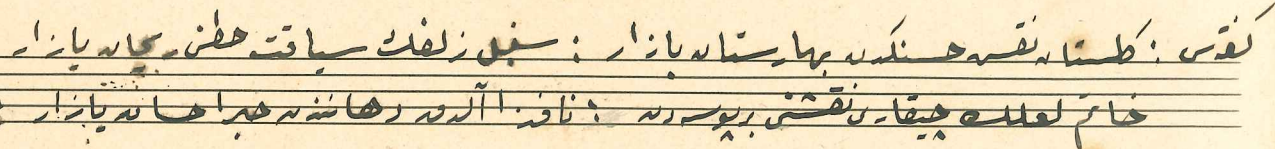 كفتهٔ سى : كلستان نقس حسنكدن بهارستان يازار : سنبل زلفك سياقتده خطن ريحان يازار
خاتم لعلك چيقاردى نقشنى بر بوسه دن : نافذ آلدى دهانندن خبر احسان يازار